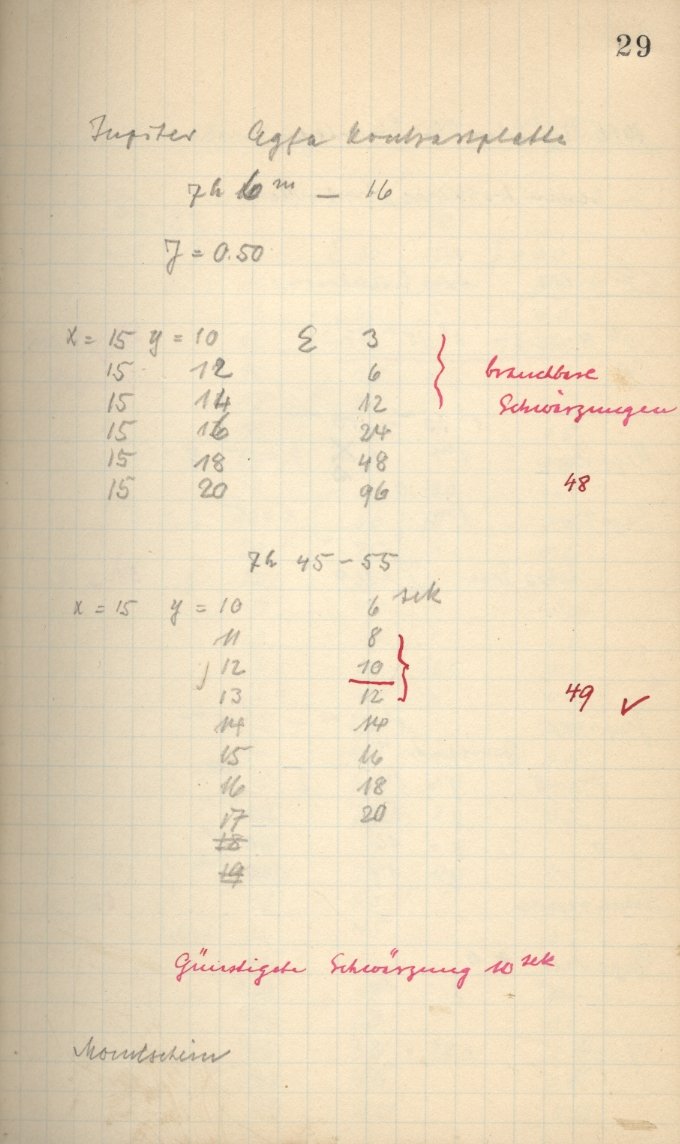 29
Jupiter Agfa Kontrastplatte
7h 6m – 16
J = 0.50
x = 15 y = 10 Σ 3
15 12 6 brauchbare
15 14 12 Schwärzungen
15 16 24
15 18 48
15 20 96 48
7h 45 – 55
x = 15 y = 10 6 sek
11 8
12 10
13 12 49 ✓
14 14
15 16
16 18
17 20
18
19
Günstigste Schwärzung 10 sek
Mondschein